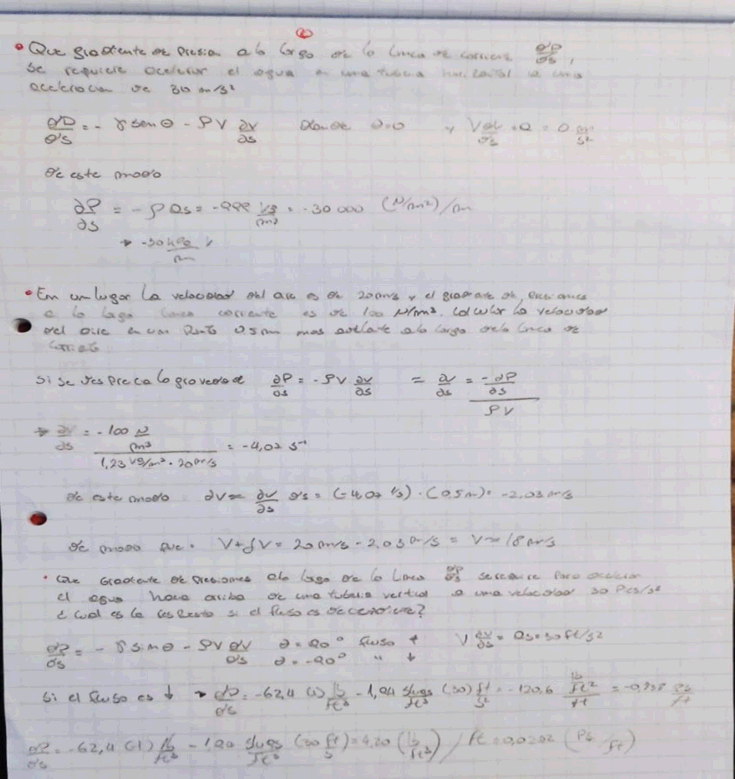 • Que gradiente de presion a lo largo de la linea de corriente ∂P/∂s,
se requiere acelerar el agua en una tuberia horizontal a una
aceleracion de 30 m/s²
∂P/∂s = - γ sen θ - ρV ∂V/∂s donde ∂=0 y V ∂V/∂s = a = 0 m/s²
de este modo
∂P/∂s = - ρ as = -999 kg/m³ = -30 000 (N/m²)/m
→ -30 kPa/m
• En un lugar la velocidad del aire es de 20 m/s y el gradiente de presiones
a lo largo linea corriente es de 100 N/m³. calcular la velocidad
del aire en un punto 0.5 m mas adelante a lo largo de la linea de
corriente
Si se desprecia la gravedad ∂P/∂s = -ρV ∂V/∂s = ∂V/∂s = -∂P/∂s / ρV
→ ∂V/∂s = -100 N/m³ / 1,23 kg/m³ · 20 m/s = -4,07 s⁻¹
de este modo ∂V = ∂V/∂s ∂s = (-4,07 1/s) · (0.5 m) = -2,03 m/s
de modo que. V+δV = 20 m/s - 2,03 m/s = V = 18 m/s
• Que gradiente de presiones a lo largo de la linea ∂P/∂s se requiere para acelerar
el agua hacia arriba de una tuberia vertical a una velocidad 30 Pies/s²
¿cual es la respuesta si el flujo es descendente?
∂P/∂s = - γ sin θ - ρV ∂V/∂s ∂ = 90° flujo ↑ V ∂V/∂s = as = 30 ft/s²
∂ = -90° " ↓
Si el flujo es ↓ → ∂P/∂s = -62,4 (1) lb/ft³ - 1,94 slugs/ft³ (30) ft/s² = -120,6 lb/ft²/ft
∂P/∂s = -62,4 (-1) lb/ft³ - 1,94 slugs/ft³ (30 ft/s) = 4,20 (lb/ft²) / ft = 0,0292 (Pb/ft)